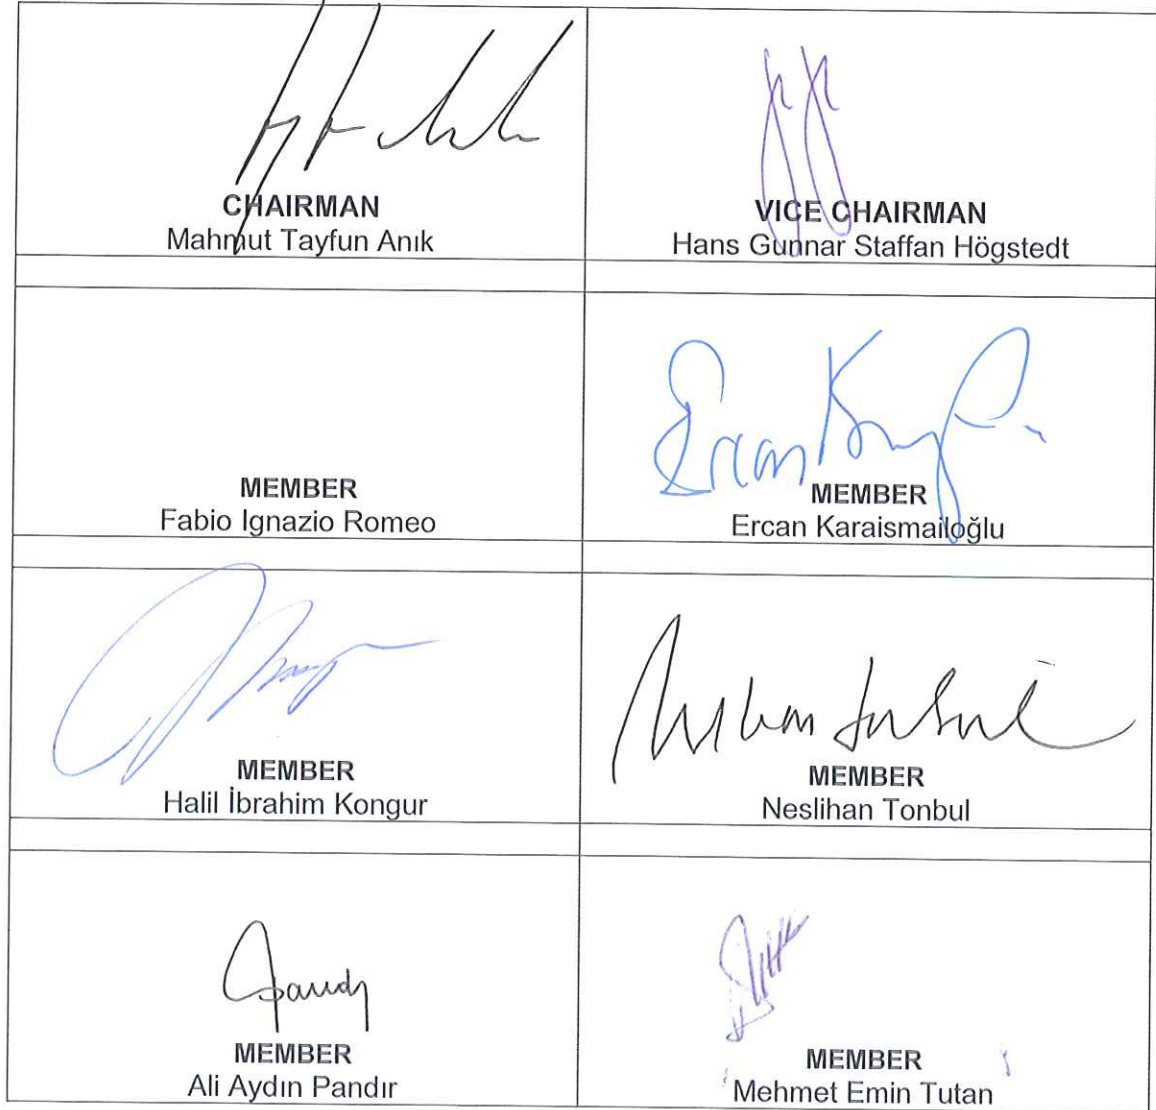 CHAIRMAN
Mahmut Tayfun Anık
VICE CHAIRMAN
Hans Gunnar Staffan Högstedt
MEMBER
Fabio Ignazio Romeo
Ercan
MEMBER
Ercan Karaismailoğlu
MEMBER
Halil İbrahim Kongur
MEMBER
Neslihan Tonbul
MEMBER
Ali Aydın Pandır
MEMBER
Mehmet Emin Tutan